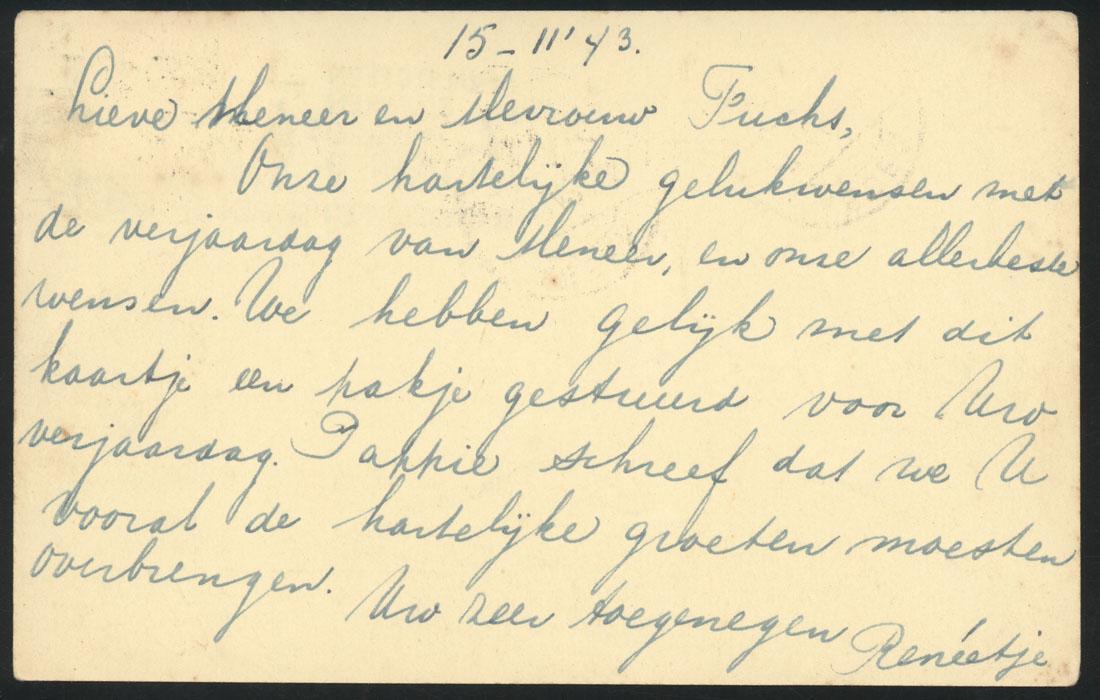 15-11'43.
Lieve Meneer en Mevrouw Fuchs,
Onze hartelijke gelukwensen met
de verjaardag van Meneer, en onze allerbeste
wensen. We hebben gelijk met dit
kaartje een pakje gestuurd voor Uw
verjaardag. Pappie schreef dat we U
vooral de hartelijke groeten moesten
overbrengen.
Uw zeer toegenegen
Renéetje